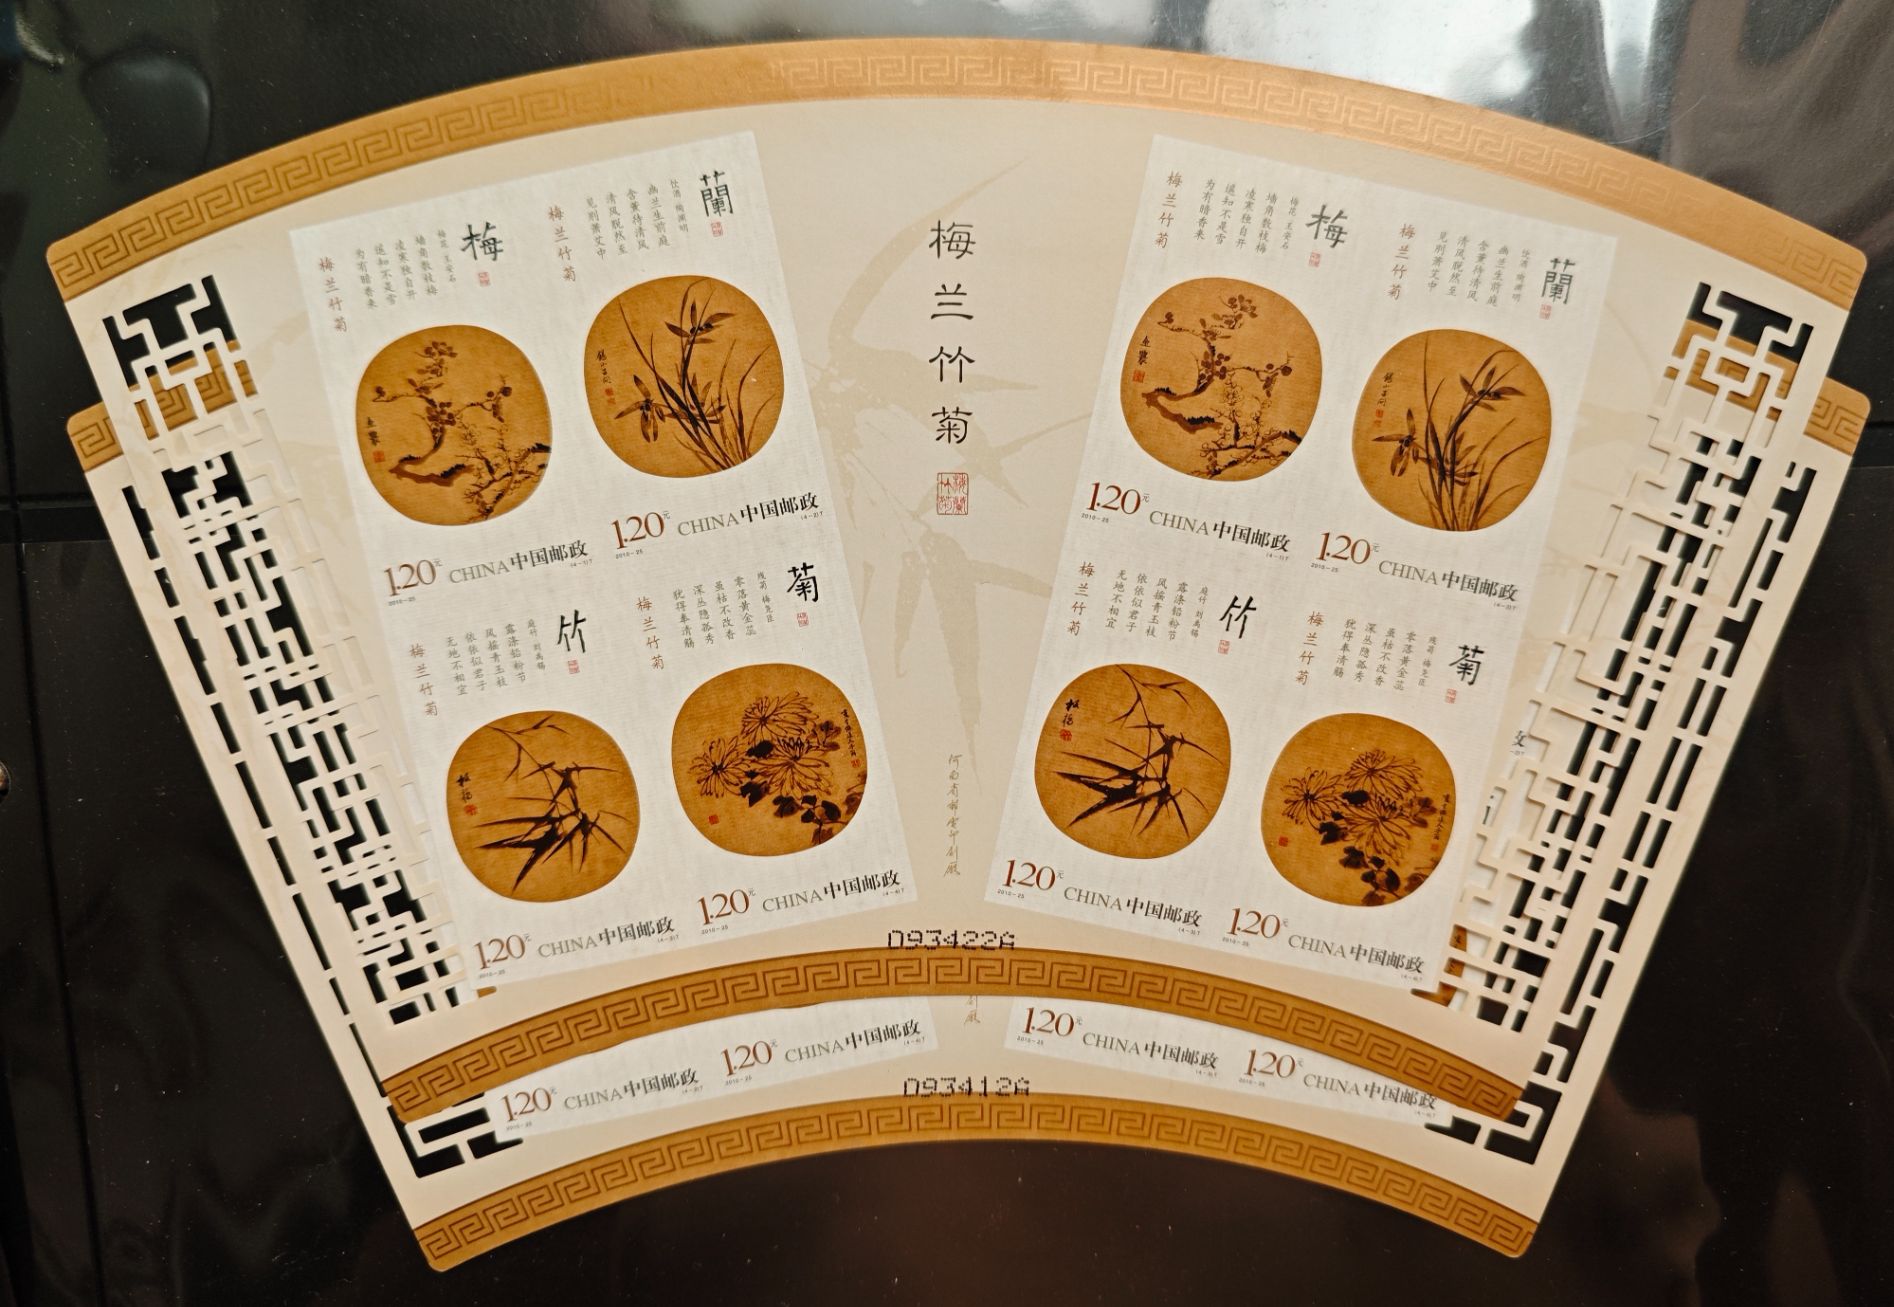 蘭
饮酒 陶渊明
幽兰生前庭
含薰待清风
清风脱然至
见别萧艾中
梅兰竹菊
梅
梅花 王安石
墙角数枝梅
凌寒独自开
遥知不是雪
为有暗香来
梅兰竹菊
1.20元 CHINA中国邮政
2010-25
(4-1)T
1.20元 CHINA中国邮政
2010-25
(4-2)T
菊
残菊 梅尧臣
零落黄金蕊
虽枯不改香
深丛隐孤秀
犹得奉清觞
梅兰竹菊
竹
庭竹 刘禹锡
露涤铅粉节
风摇青玉枝
依依似君子
无地不相宜
梅兰竹菊
1.20元 CHINA中国邮政
2010-25
(4-3)T
1.20元 CHINA中国邮政
2010-25
(4-4)T
梅兰竹菊
河南省邮电印刷厂
D93422A
梅
梅花 王安石
墙角数枝梅
凌寒独自开
遥知不是雪
为有暗香来
梅兰竹菊
蘭
饮酒 陶渊明
幽兰生前庭
含薰待清风
清风脱然至
见别萧艾中
梅兰竹菊
1.20元 CHINA中国邮政
2010-25
(4-1)T
1.20元 CHINA中国邮政
2010-25
(4-2)T
竹
庭竹 刘禹锡
露涤铅粉节
风摇青玉枝
依依似君子
无地不相宜
梅兰竹菊
菊
残菊 梅尧臣
零落黄金蕊
虽枯不改香
深丛隐孤秀
犹得奉清觞
梅兰竹菊
1.20元 CHINA中国邮政
2010-25
(4-3)T
1.20元 CHINA中国邮政
2010-25
(4-4)T
1.20元 CHINA中国邮政
2010-25
(4-3)T
1.20元 CHINA中国邮政
2010-25
(4-4)T
1.20元 CHINA中国邮政
2010-25
(4-3)T
1.20元 CHINA中国邮政
2010-25
(4-4)T
D93412A